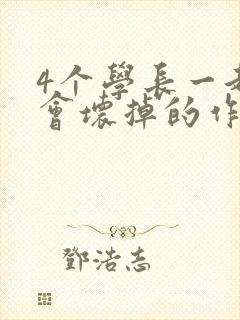 4个學長一
會壞掉的作
鄧浩志